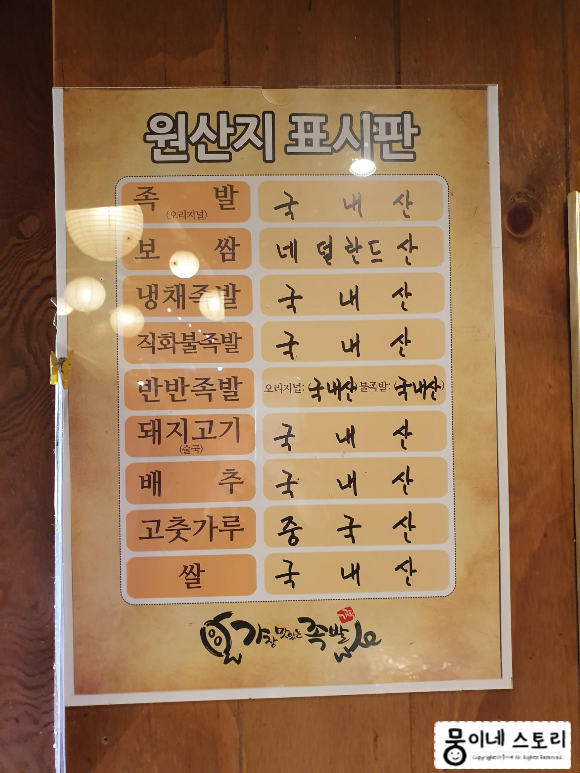 원산지 표시판
족발 국내산
(오리지널)
보쌈 네덜란드산
냉채족발 국내산
직화불족발 국내산
반반족발 오리지널: (국내산) 불족발: (국내산)
돼지고기 국내산
(술국)
배추 국내산
고춧가루 중국산
쌀 국내산
가장 맛있는 족발
뭉이네 스토리
Copyright ⓒ 뭉이네 All Rights Reserved.